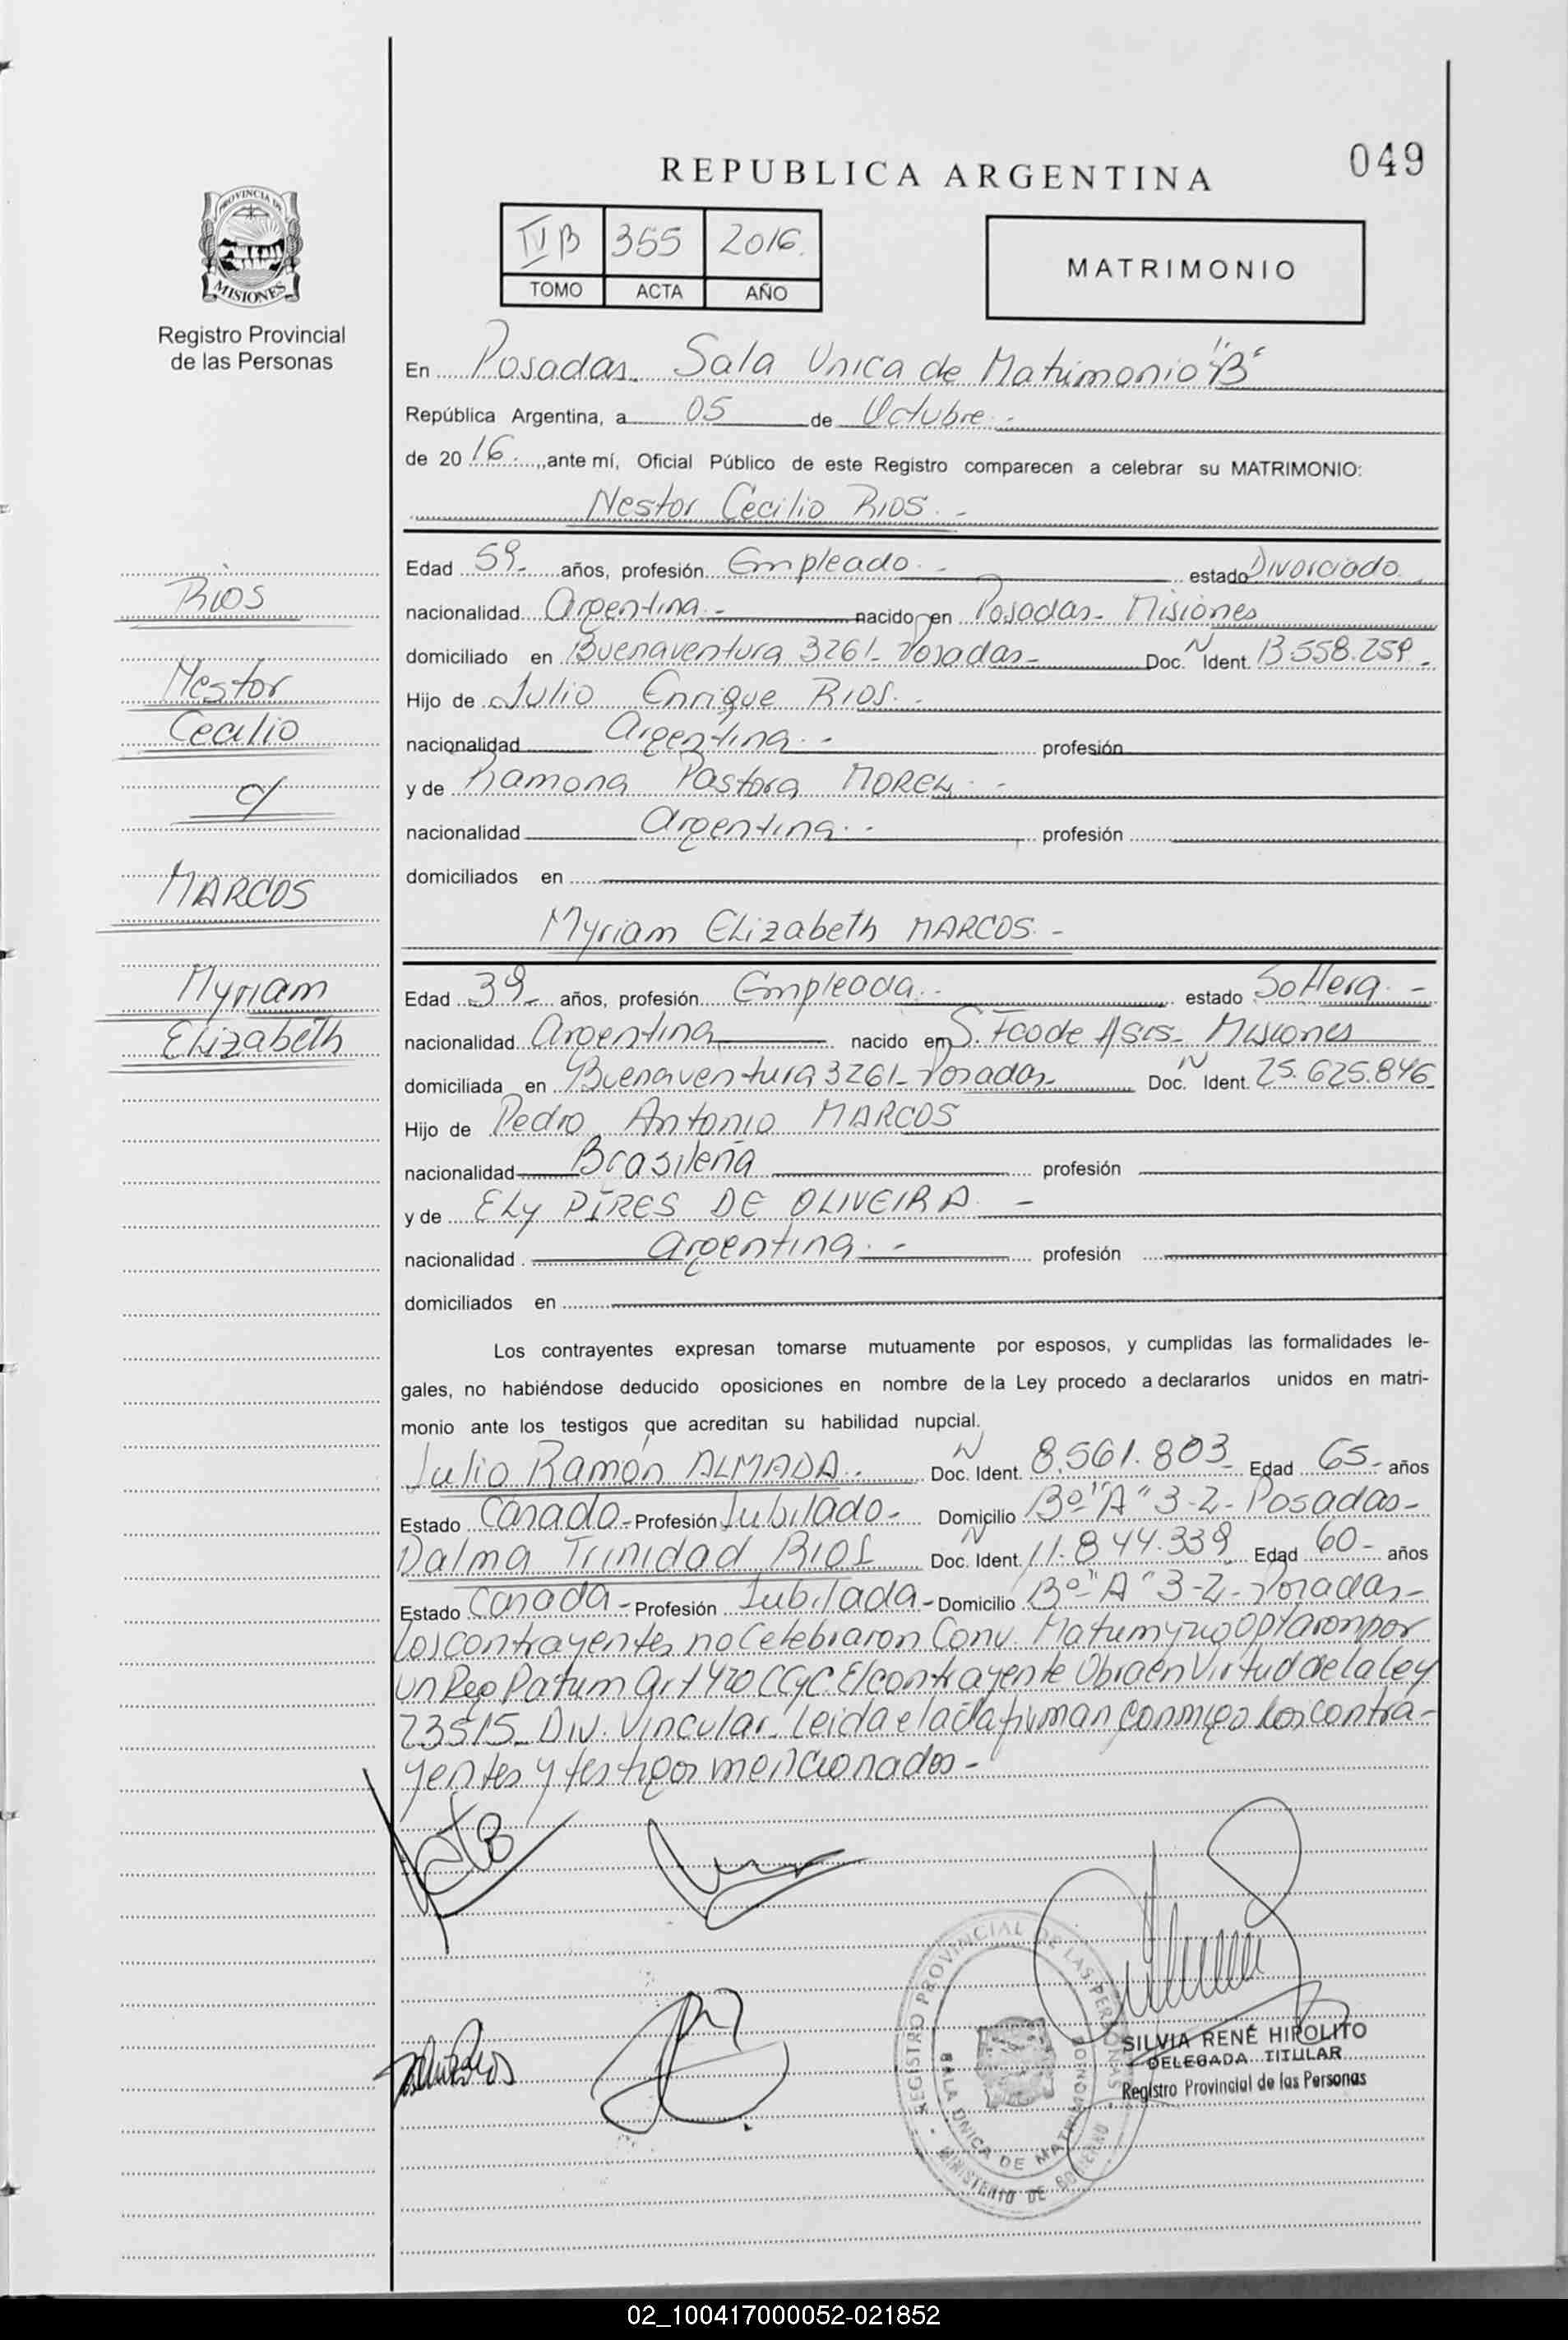 049
REPUBLICA ARGENTINA
PROVINCIA DE
MISIONES
Registro Provincial
de las Personas
IV B 355 2016.
TOMO ACTA AÑO
MATRIMONIO
En Posadas. Sala Unica de Matrimonio "B"
República Argentina, a 05 de Octubre.-
de 2016. ,,ante mí, Oficial Público de este Registro comparecen a celebrar su MATRIMONIO:
Nestor Cecilio RIOS.-
Rios
Nestor
Cecilio
c/
MARCOS
Myriam
Elizabeth
Edad 59- años, profesión Empleado.- estado Divorciado.
nacionalidad Argentina.- nacido en Posadas- Misiones
domiciliado en Buenaventura 3261- Posadas- Doc. N Ident. 13.558.259.-
Hijo de Julio Enrique RIOS.-
nacionalidad Argentina.- profesión
y de Ramona Pastora MOREL.-
nacionalidad Argentina.- profesión
domiciliados en
Myriam Elizabeth MARCOS.-
Edad 39- años, profesión Empleada.- estado Soltera.-
nacionalidad Argentina nacido en S. Fco de Asis- Misiones
domiciliada en Buenaventura 3261- Posadas- Doc. N Ident. 25.625.846-
Hijo de Pedro Antonio MARCOS
nacionalidad Brasileña profesión
y de Ely PIRES DE OLIVEIRA.-
nacionalidad Argentina.- profesión
domiciliados en
Los contrayentes expresan tomarse mutuamente por esposos, y cumplidas las formalidades le-
gales, no habiéndose deducido oposiciones en nombre de la Ley procedo a declararlos unidos en matri-
monio ante los testigos que acreditan su habilidad nupcial.
Julio Ramón ALMADA.- Doc. N Ident. 8.561.803- Edad 65- años
Estado Casado- Profesión Jubilado- Domicilio Bº "A" 3-2- Posadas-
Dalma Trinidad RIOS Doc. N Ident. 11.844.339 Edad 60- años
Estado Casada- Profesión Jubilada- Domicilio Bº "A" 3-2- Posadas-
Los contrayentes no Celebraron Conv. Matrim y no Optaron por
un Reg Patrim Art 420 CCyC. El contrayente Obra en Virtud de la ley
23515- Div. Vincular. Leida el acta firman conmigo los contra-
yentes y testigos mencionados-
REGISTRO PROVINCIAL DE LAS PERSONAS
SALA UNICA DE MATRIMONIO
MINISTERIO DE GOBIERNO
SILVIA RENÉ HIPOLITO
DELEGADA TITULAR
Registro Provincial de las Personas
02_100417000052-021852